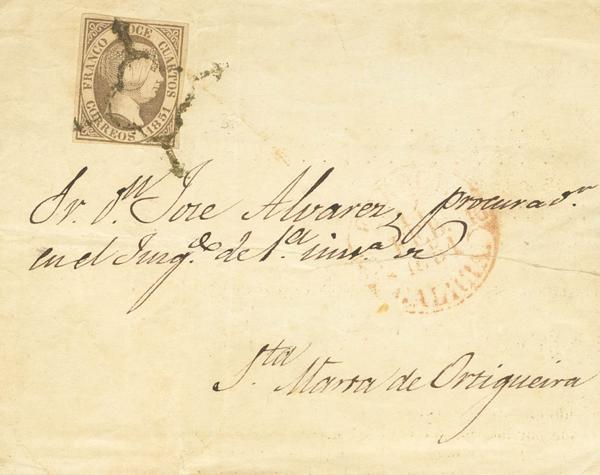 FRANCO DOCE CUARTOS
CORREOS 1851
Sr. Dn. Jose Alvarez, procurador
en el Juzgdo. de 1a. insa. de
Sta. Marta de Ortigueira
GALICIA